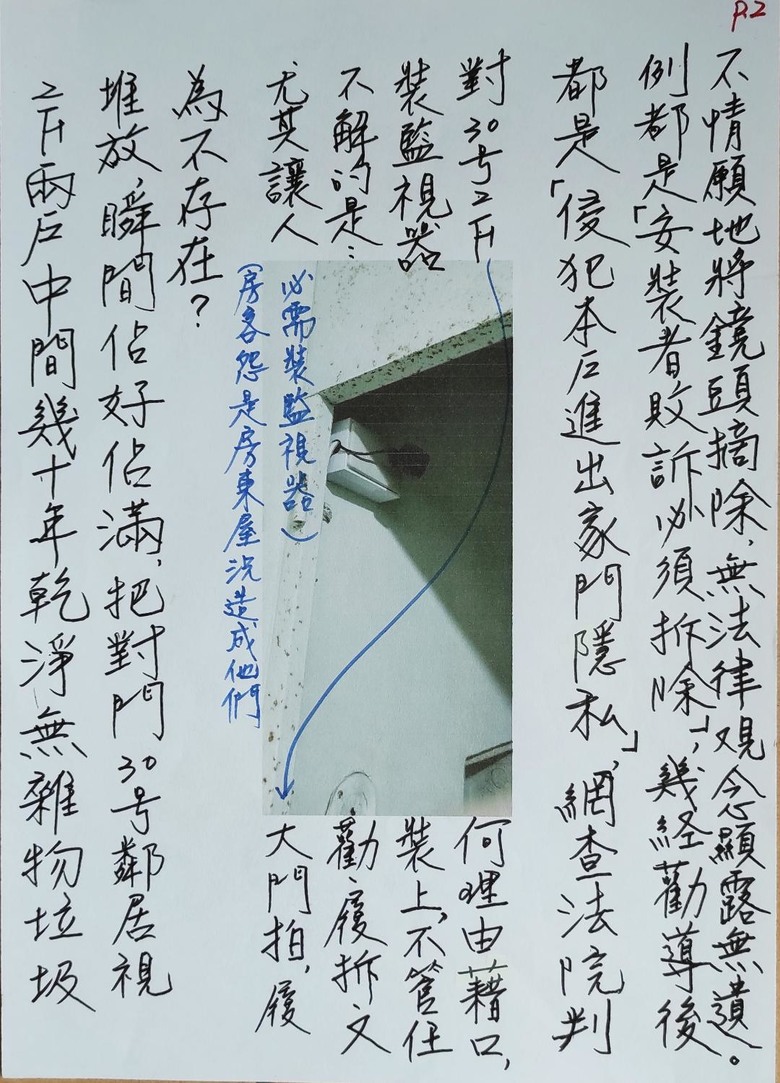 P.2
2F兩户中間幾十年乾淨無雜物垃圾
堆放,瞬間佔好佔滿,把對門30号鄰居視
為不存在?
尤其讓人
不解的是:
裝監視器
對30号2F
(房客怨是房東屋況造成他們
必需裝監視器)
大門拍,履
勸、履拆又
裝上,不管任
何理由藉口,
都是「侵犯本户進出家門隱私」,網查法院判
例都是「安裝者敗訴必須拆除」,幾经勸導後
不情願地將鏡頭摘除,無法律观念顯露無遺。